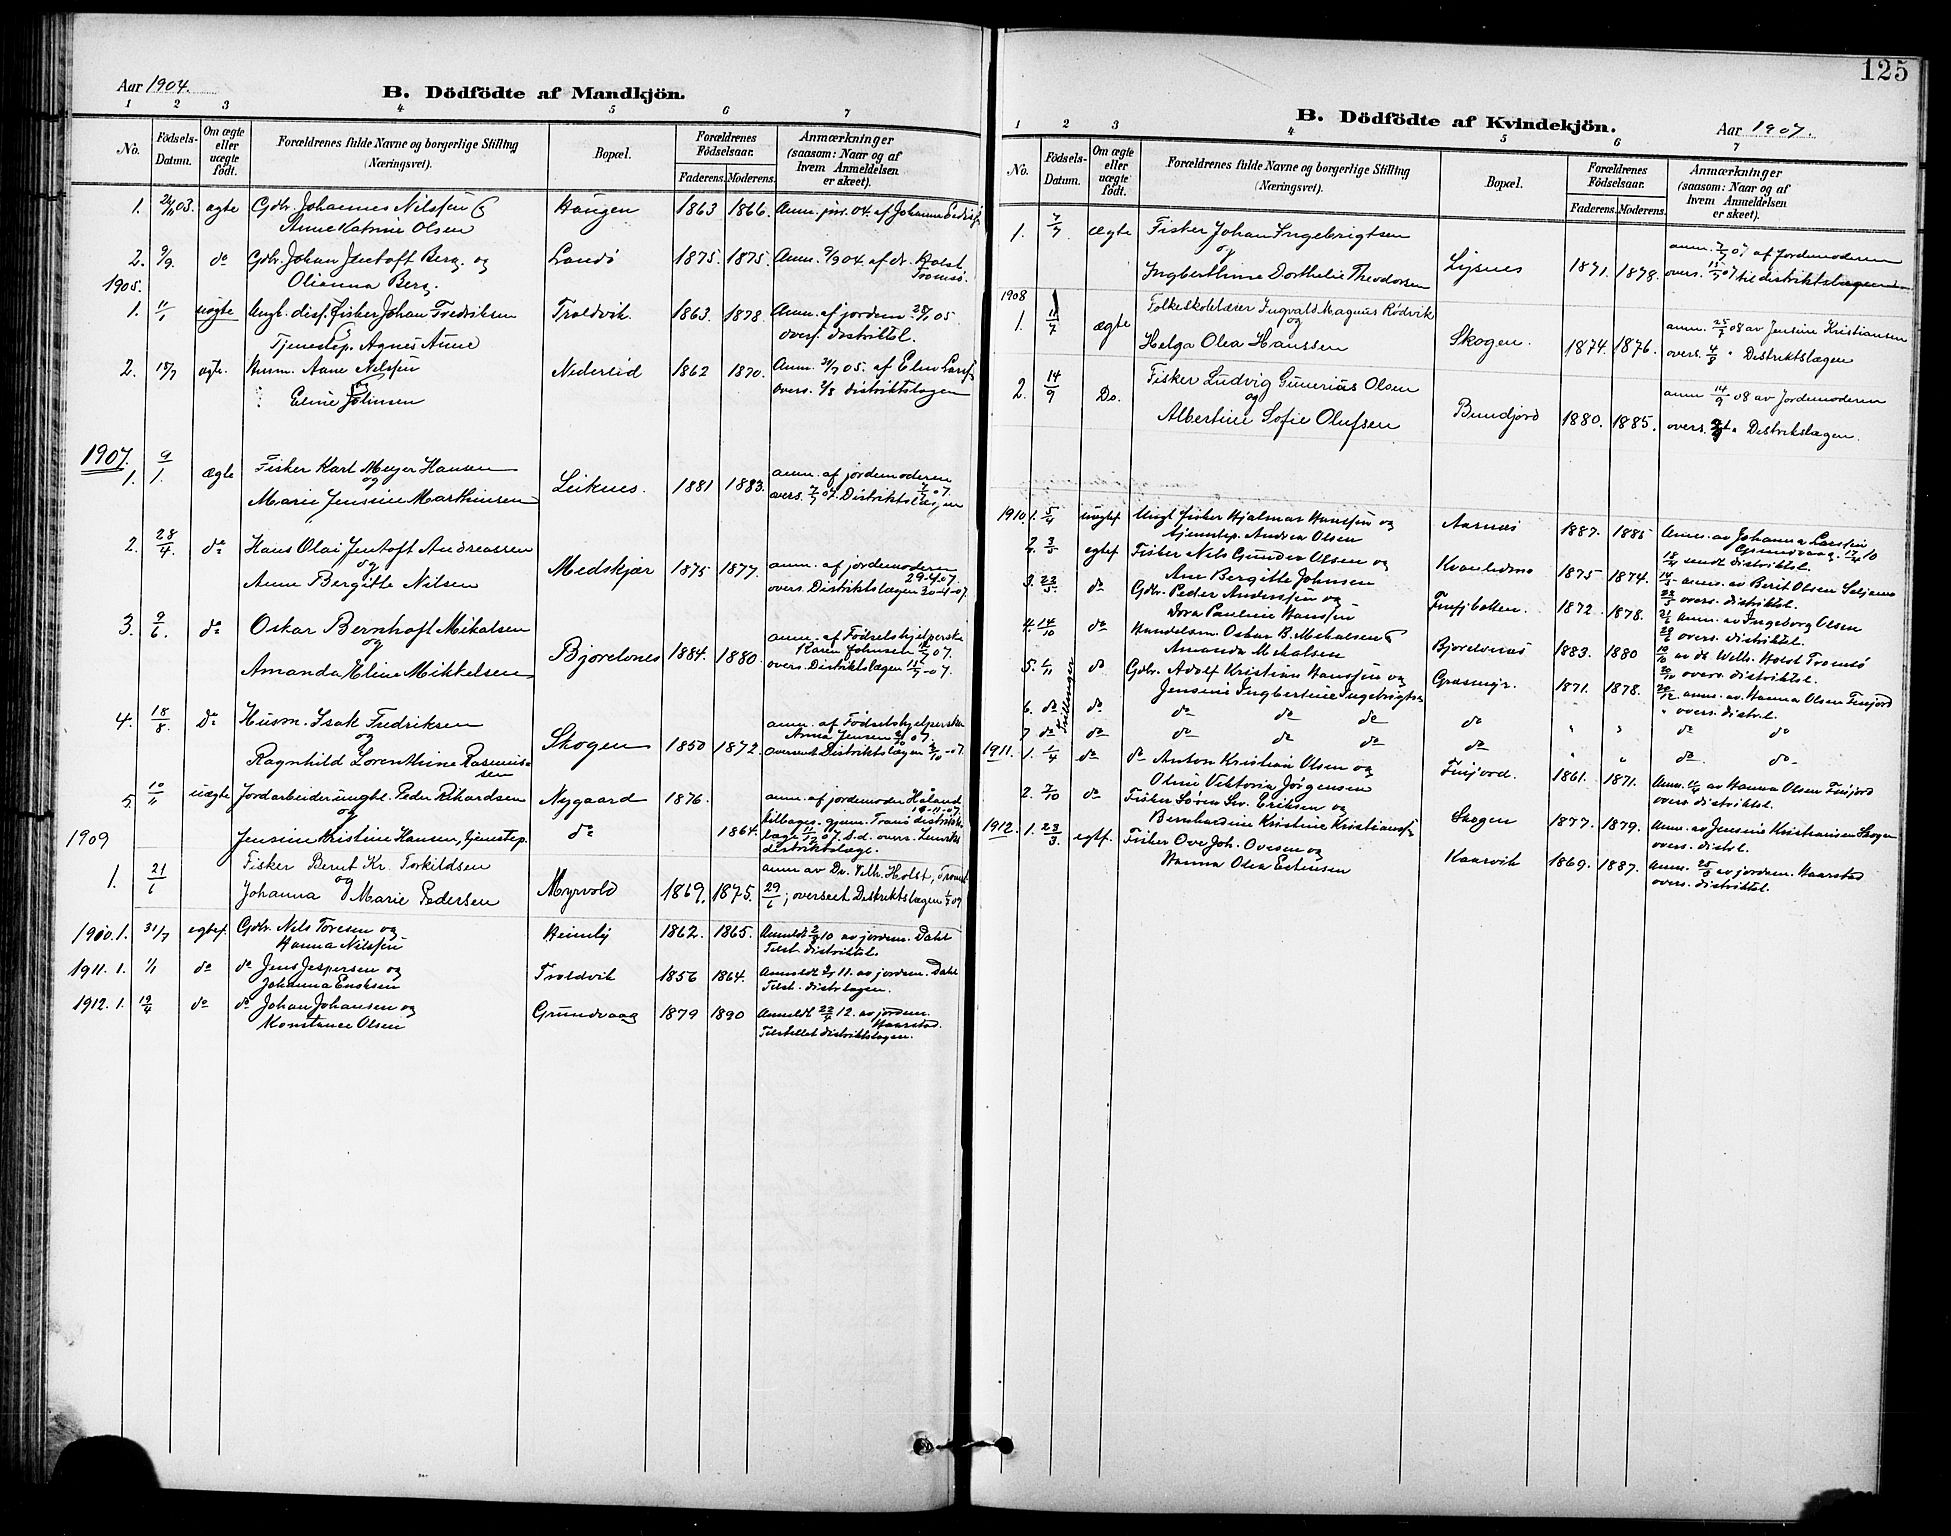 Aar 1904.
B. Dödfödte af Mandkjön.
1 2 3 4 5 6 7
No. Födsels-Datum. Om ægte eller uægte födt. Forældrenes fulde Navne og borgerlige Stilling (Næringsvei). Bopæl. Forældrenes Födselsaar. Faderens. Moderens. Anmærkninger (saasom: Naar og af hvem Anmeldelsen er skeet).
1. 03. ægte Gdbr. Johannes Nilssen & Haugen 1863 1866. Anm. 04. af Johanna
Anne Katrine Olsen
2. 9/9. do Gdbr. Johan Jentoft Berg og Sandö 1875. 1875. Anm. 9/9 04. af dr. Holst
Olianna Berg. Tromsö.
1905.
1. 11/1 uægte Ungk. disp. fisker Johan Fredriksen Troldvik. 1863. 1878. Anm. af jordem. 28/1 05.
Tjenestep. Agnes Aune overs. distriktsl.
2. 18/7 ægte. Husm. Aane Nilssen Nedereid 1862 1870. Anm. 05. af Eline
og Eline Johnsen overs. 2/8 distriktslægen
1907.
1. 9/1. ægte Fisker Karl Meyer Hansen Leiknes. 1881 1883. anm. af jordemoderen
og
Marie Jensine Marthinsen overs. 7/7 07. Distriktslægen
2. 28/4. do Hans Olai Jentoft Andreassen Medskjær 1875 1877. anm. af jordemoderen
og 29-4-07.
Anne Bergitte Nilsen overs. Distriktslægen 30-4-07.
3. 9/6. do Oskar Bernhoft Mikalsen Bjorelvnes 1884. 1880. anm. af Fødselshjelperske
og Karen Johnsen 07.
Amanda Eline Mikkelsen overs. Distriktslægen 07.
4. 18/8. Do Husm. Isak Fredriksen Skogen 1850 1872. anm. af Fødselshjelperske
og Anna Jensen 07.
Ragnhild Lorenthine Rasmussen oversent Distriktslægen 2/10-07.
5. 10/11 uægte Jordarbeider ungk. Peder Rikardsen Nygaard 1876. anm. af jordemoder Haland
og 18-11-07.
1909 Jensine Kristine Hansen, tjenestep. do 1864.
1. 21/6 Fisker Bernt Kr. Torkildsen Myrvold 1869. 1875. anm av Dr. Vilh. Holst, Tromsö
og
Johanna Marie Pedersen 29/6; overseet Distriktslægen
1910. 1. 31/7 egtef. Gdbr. Nils Toresen og Heimly 1862. 1865. Anmeldt 10 av jordem. Dahl
Hanna Nilssen Tilst. distriktsl.
1911. 1. 1/1 do do Jens Jespersen og Troldvik 1856 1864. Anmeldt 11. av jordem. Dahl
Johanna Enoksen Tilst. distr.lægen.
1912. 1. 19/4 do do Johan Johansen og Grundvaag 1879 1890 Anmeldt 22/4 12. av jordem.
Konstance Olsen Haarstad.
Tilstillet distriktslægen.
125
B. Dödfödte af Kvindekjön.
Aar 1907.
1 2 3 4 5 6 7
No. Födsels-Datum. Om ægte eller uægte födt. Forældrenes fulde Navne og borgerlige Stilling (Næringsvei). Bopæl. Forældrenes Födselsaar. Faderens. Moderens. Anmærkninger (saasom: Naar og af hvem Anmeldelsen er skeet).
1. 7/7 ægte Fisker Johan Ingebrigtsen Lysnes 1871. 1878. anm. 7/7 07 af Jordemoderen
og
Ingberthine Dorthelie Theodorsen overs. 07 til distriktslægen
1908
1. 11/7 ægte Folkeskolelærer Ingvald Magnus Rödvik Skogen. 1874. 1876. anm. 25/7 08 av Jensine Kristiansen
og
Helga Olea Hanssen overs. 4/8 " Distriktslægen
2. 14/9 Do. Fisker Ludvig Gunerius Olsen Bundjord 1880. 1885. anm 14/9 08 av Jordemoderen
og
Albertine Sofie Olufsen overs. Distriktslægen.
1910. 1. 5/4 uegtef Ungk fisker Hjalmar Hanssen og Aarnes 1887. 1885 Anm. av Johanna Larssen
tjenestep. Andrea Olsen Grundvaag. 17/4 10
2. 3/5 egtef Fisker Nils Gunder Olsen og Kvanlidmo 1875 1874. 18/4 sendt distriktsl.
Ane Bergitte Johnsen 14/5 anm. av Berit Olsen
3. 23/5 do Gdbr. Peder Anderssen og Finfjbakken. 1872. 1878. 22/5 overs. distriktsl.
Dora Pauline Hanssen anm. av Ingeborg Olsen
4. 14/10 do Handelsm. Oskar B. Mikalsen & Bjorelvnes 1883. 1880 overs. distriktsl.
Amanda Mikalsen av dr. Wilh. Holst Tromsö
5. 1/11 do Gdbr. Adolf Kristian Hanssen og Græsmyr. 1871. 1878. overs. distriktsl.
Jensine Ingbertine Ingebrigtsen anm. av Hanna Olsen Finfjord
6. do do do do do do " " overs. distrsl.
7 do do do do do do " " do do
Trillinger
1911. 1. 1/4 do do Anton Kristian Olsen og Finfjord. 1861. 1871. Anm. av Hanna Olsen Finfjord
Oline Viktoria Jørgensen overs. distriktsl.
2. 7/10 do Fisker Søren Sv. Eriksen og Skogen 1877. 1879. Anm. av Jensine Kristiansen Skogen
Bernhardine Kristine Kristianss. overs. distsl.
1912. 1. 23/3. egtf. Fisker Ove Joh. Ovesen og Kaarvik 1869. 1887. Anm. av jordem. Haarstad
Hanna Olea Estensen overs. distriktsl.